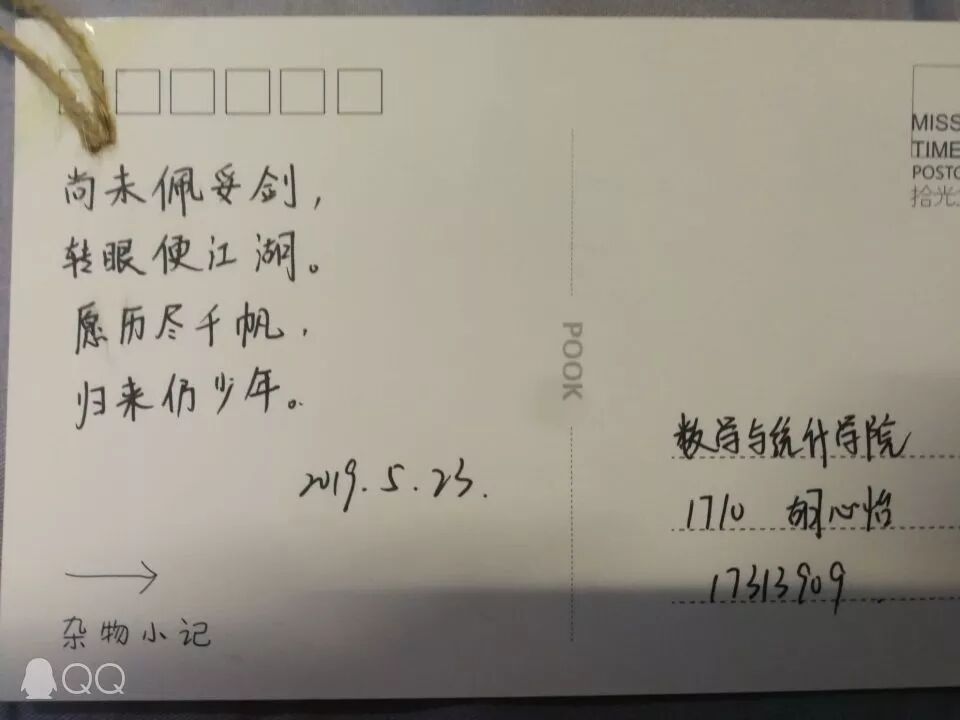 尚未佩妥剑，
转眼便江湖。
愿历尽千帆，
归来仍少年。
2019.5.23.
杂物小记
QQ
POOK
MISS
TIME
POSTC
拾光
数学与统计学院
1710 胡心怡
17313909